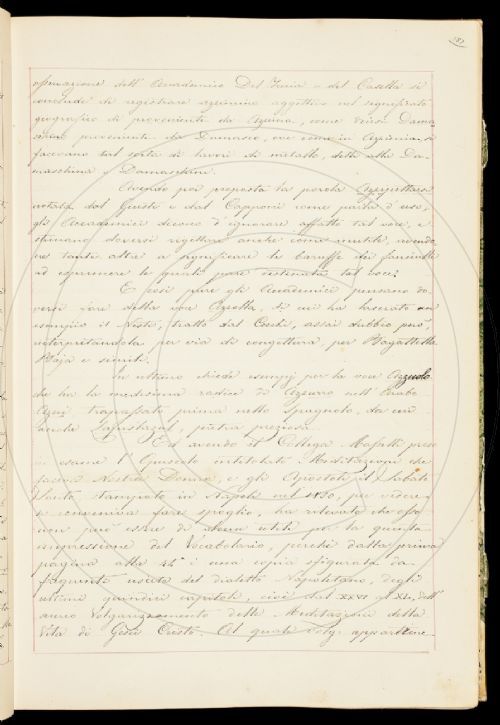 187
osservazione dell' Accademico Del Furia e del Casella si
conclude di registrare azzimino aggettivo nel significato
geografico di proveniente da Azzimia, come dicesi Dama-
schino proveniente da Damasco, ove come in Azzimia si
facevano tal sorta di lavori di metallo, detti alla Da-
maschina o Damaschini.
Avendo poi proposta la parola
notata dal Giusti e dal Capponi come parola d'uso,
gli Accademici dicono d'ignorare affatto tal voce, e
stimano doversi rigettare anche come inutile, avendo-
ne tante altre a significare le baruffe dei fanciulli
ad esprimere le quali pare destinata tal voce.
E così pure gli Accademici pensano do-
versi fare della voce di cui ha lasciato un
esempio il tratto dal Cecchi, assai dubbio però,
interpretandola per via di congettura, per Bagattella
Baja e simili.
In ultimo chiede esempj per la voce Azzuolo
che ha la medesima radice di Azzurro nell' Arabo
trapassata prima nello Spagnolo, da cui
anche pietra preziosa.
Ed avendo il Collega preso
in esame l'Opuscolo intitolato Meditazione che
faceva Nostra Donna, e gli Apostoli il Sabato
Santo, stampato in Napoli nel 1850, per vedere
se conveniva farne spoglio, ha rilevato che esso
non può essere di alcun utile per la quinta
impressione del Vocabolario, perchè dalla prima
pagina alla 44ª è una copia sfigurata da
frequente uscita del dialetto Napolitano, degli
ultimi quindici capitoli, cioè dal XXVI al XL, dell'
aureo Volgarizzamento delle Meditazioni della
Vita di Gesù Cristo. Al quale Volg. appartene-